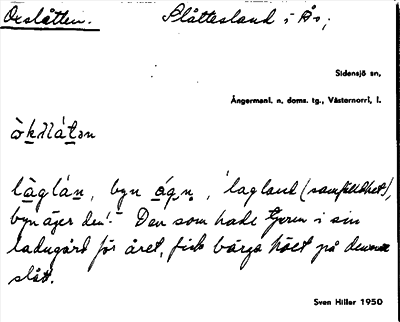 Oxslåtten. Slåttesland i Ås;
Sidensjö sn,
Ångermanl. n. doms. tg., Västernorrl. l.
låglán, byn ága, 'lagland (samfälldhet),
byn äger den'. Den som hade tjuren i sin
ladugård för året, fick bärga höet på denna
slåt.
Sven Hiller 1950